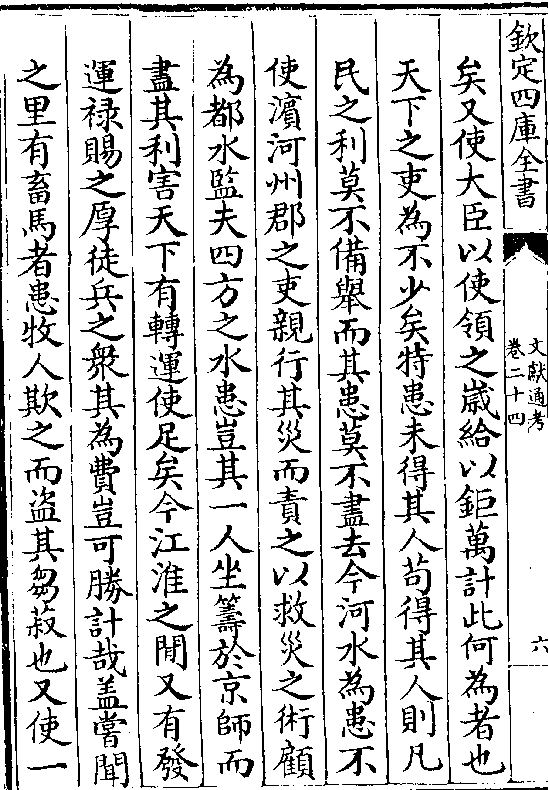 欽定四庫全書
文獻通考
卷二十四
六
矣又使大臣以使領之歲給以鉅萬計此何為者也
天下之吏為不少矣特患未得其人苟得其人則凡
民之利莫不備舉而其患莫不盡去今河水為患不
使濵河州郡之吏親行其災而責之以救災之術顧
為都水監夫四方之水患豈其一人坐籌於京師而
盡其利害天下有轉運使足矣今江淮之間又有發
運祿賜之厚徒兵之衆其為費豈可勝計哉盖嘗聞
之里有畜馬者患牧人欺之而盜其芻菽也又使一